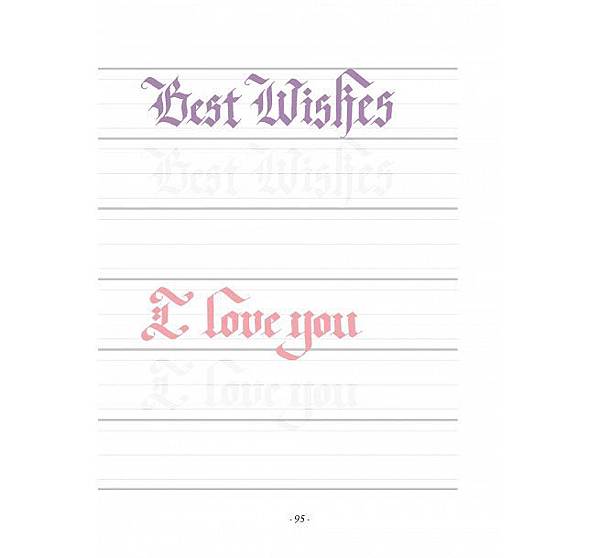 Best Wishes
Best Wishes
I love you
I love you
- 95 -